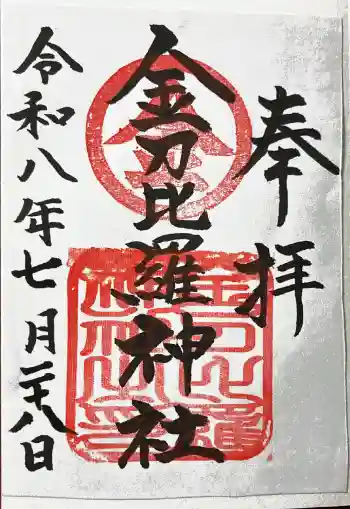 奉拝
金刀比羅神社
令和八年七月二十八日